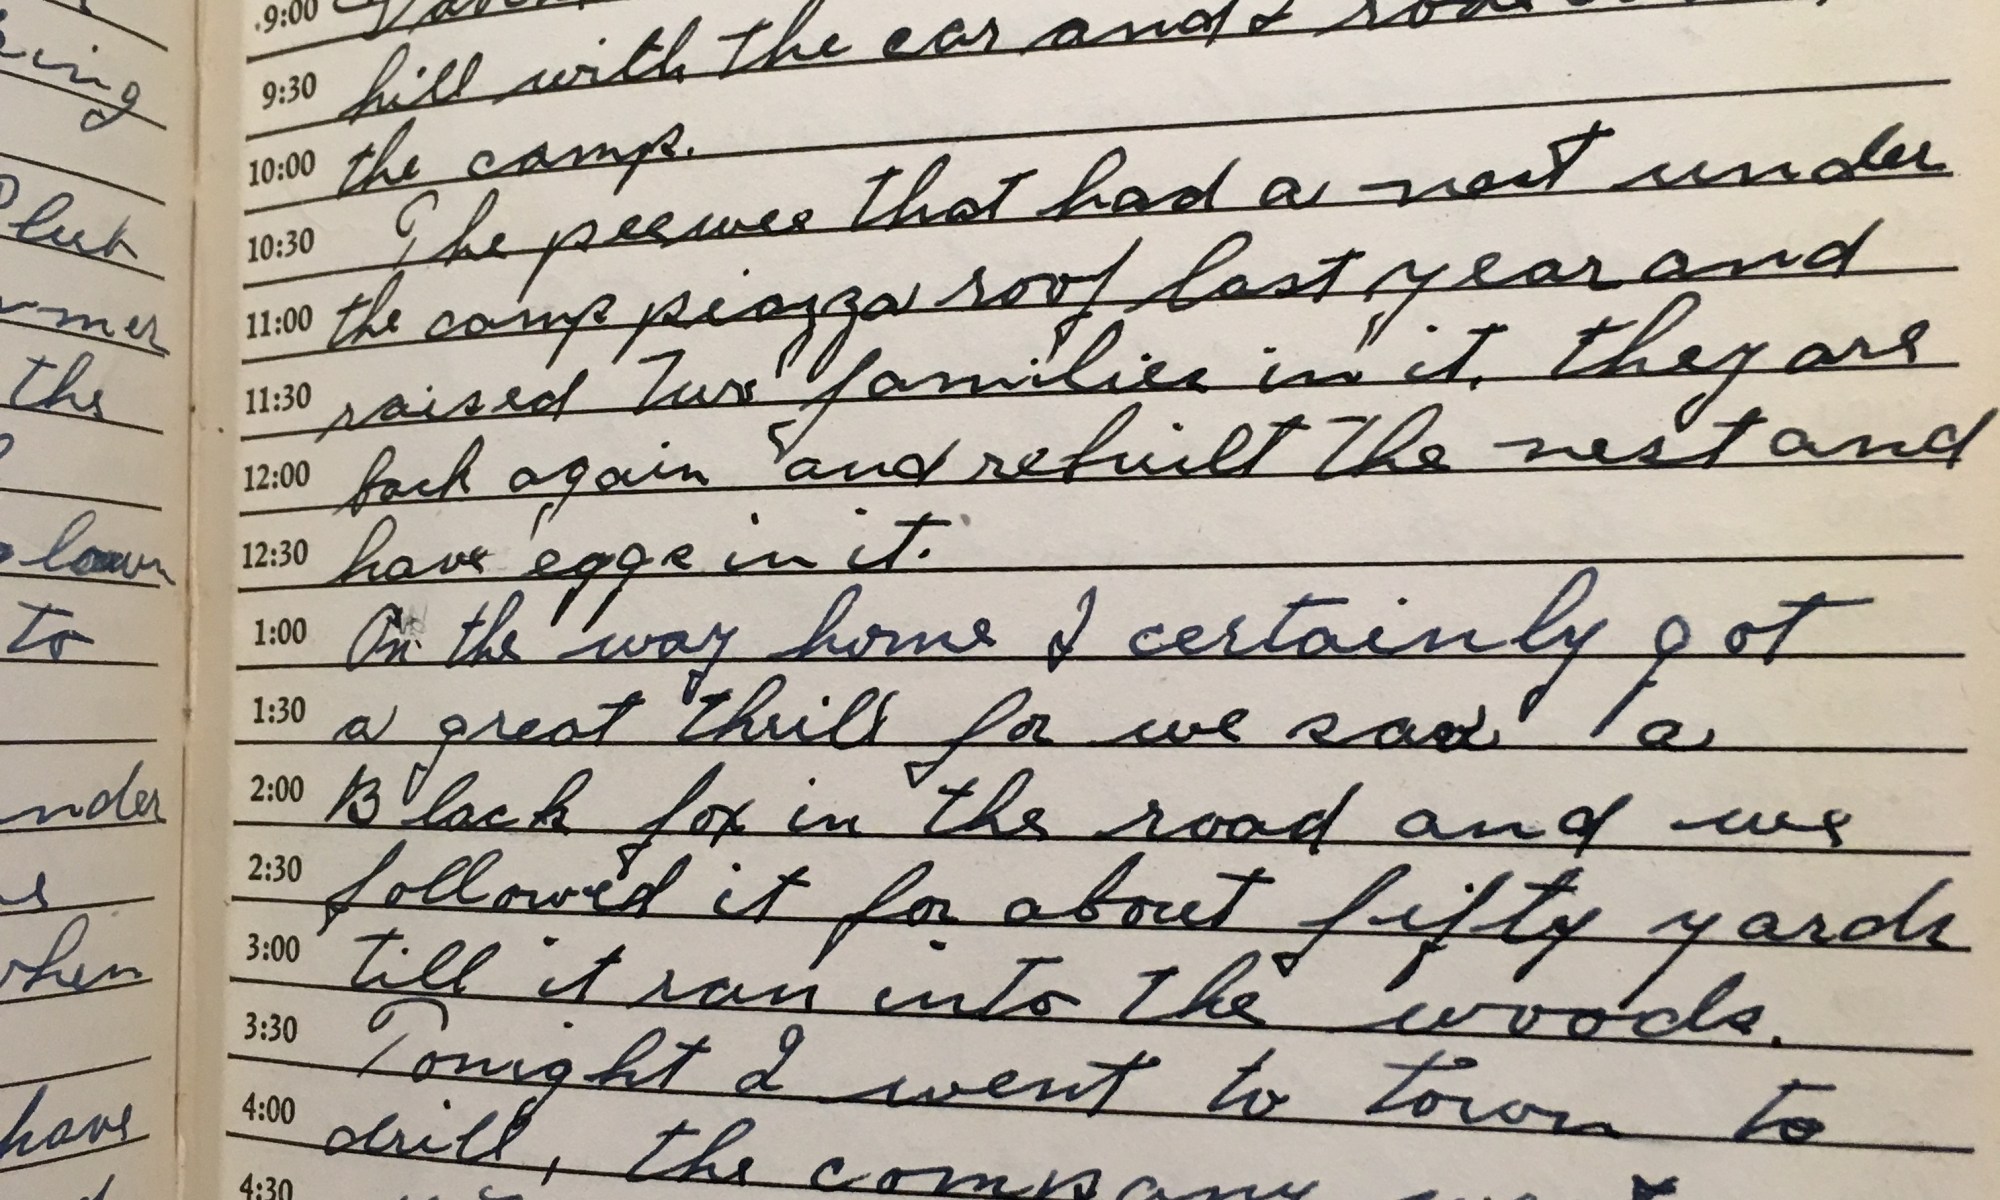 9:00
9:30 hill with the car and I
10:00 the camp.
10:30 The peewee that had a nest under
11:00 the camp piazza roof last year and
11:30 raised two families in it, they are
12:00 back again and rebuilt the nest and
12:30 have eggs in it.
1:00 On the way home I certainly got
1:30 a great thrill for we saw a
2:00 Black fox in the road and we
2:30 followed it for about fifty yards
3:00 till it ran into the woods.
3:30 Tonight I went to town to
4:00 drill, the company
4:30
the
to
have